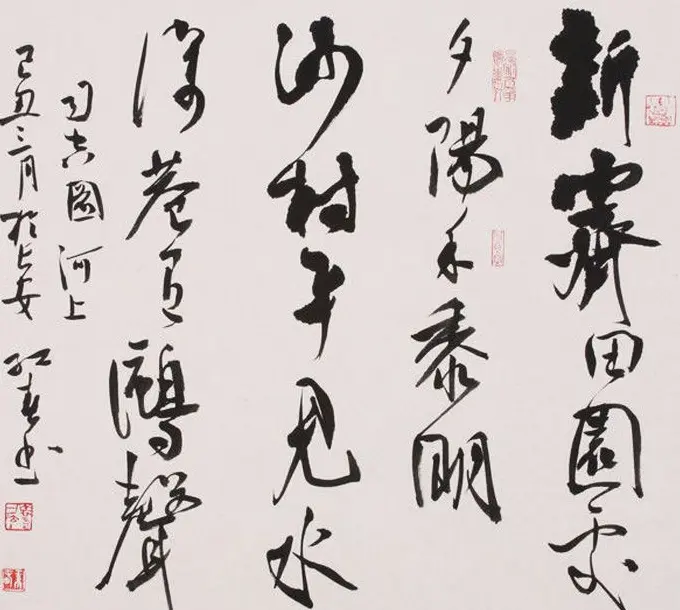 新霽田園處
夕陽禾黍明
沙村平見水
深巷有鷗聲
司空圖 河上
己丑三月於長安 书